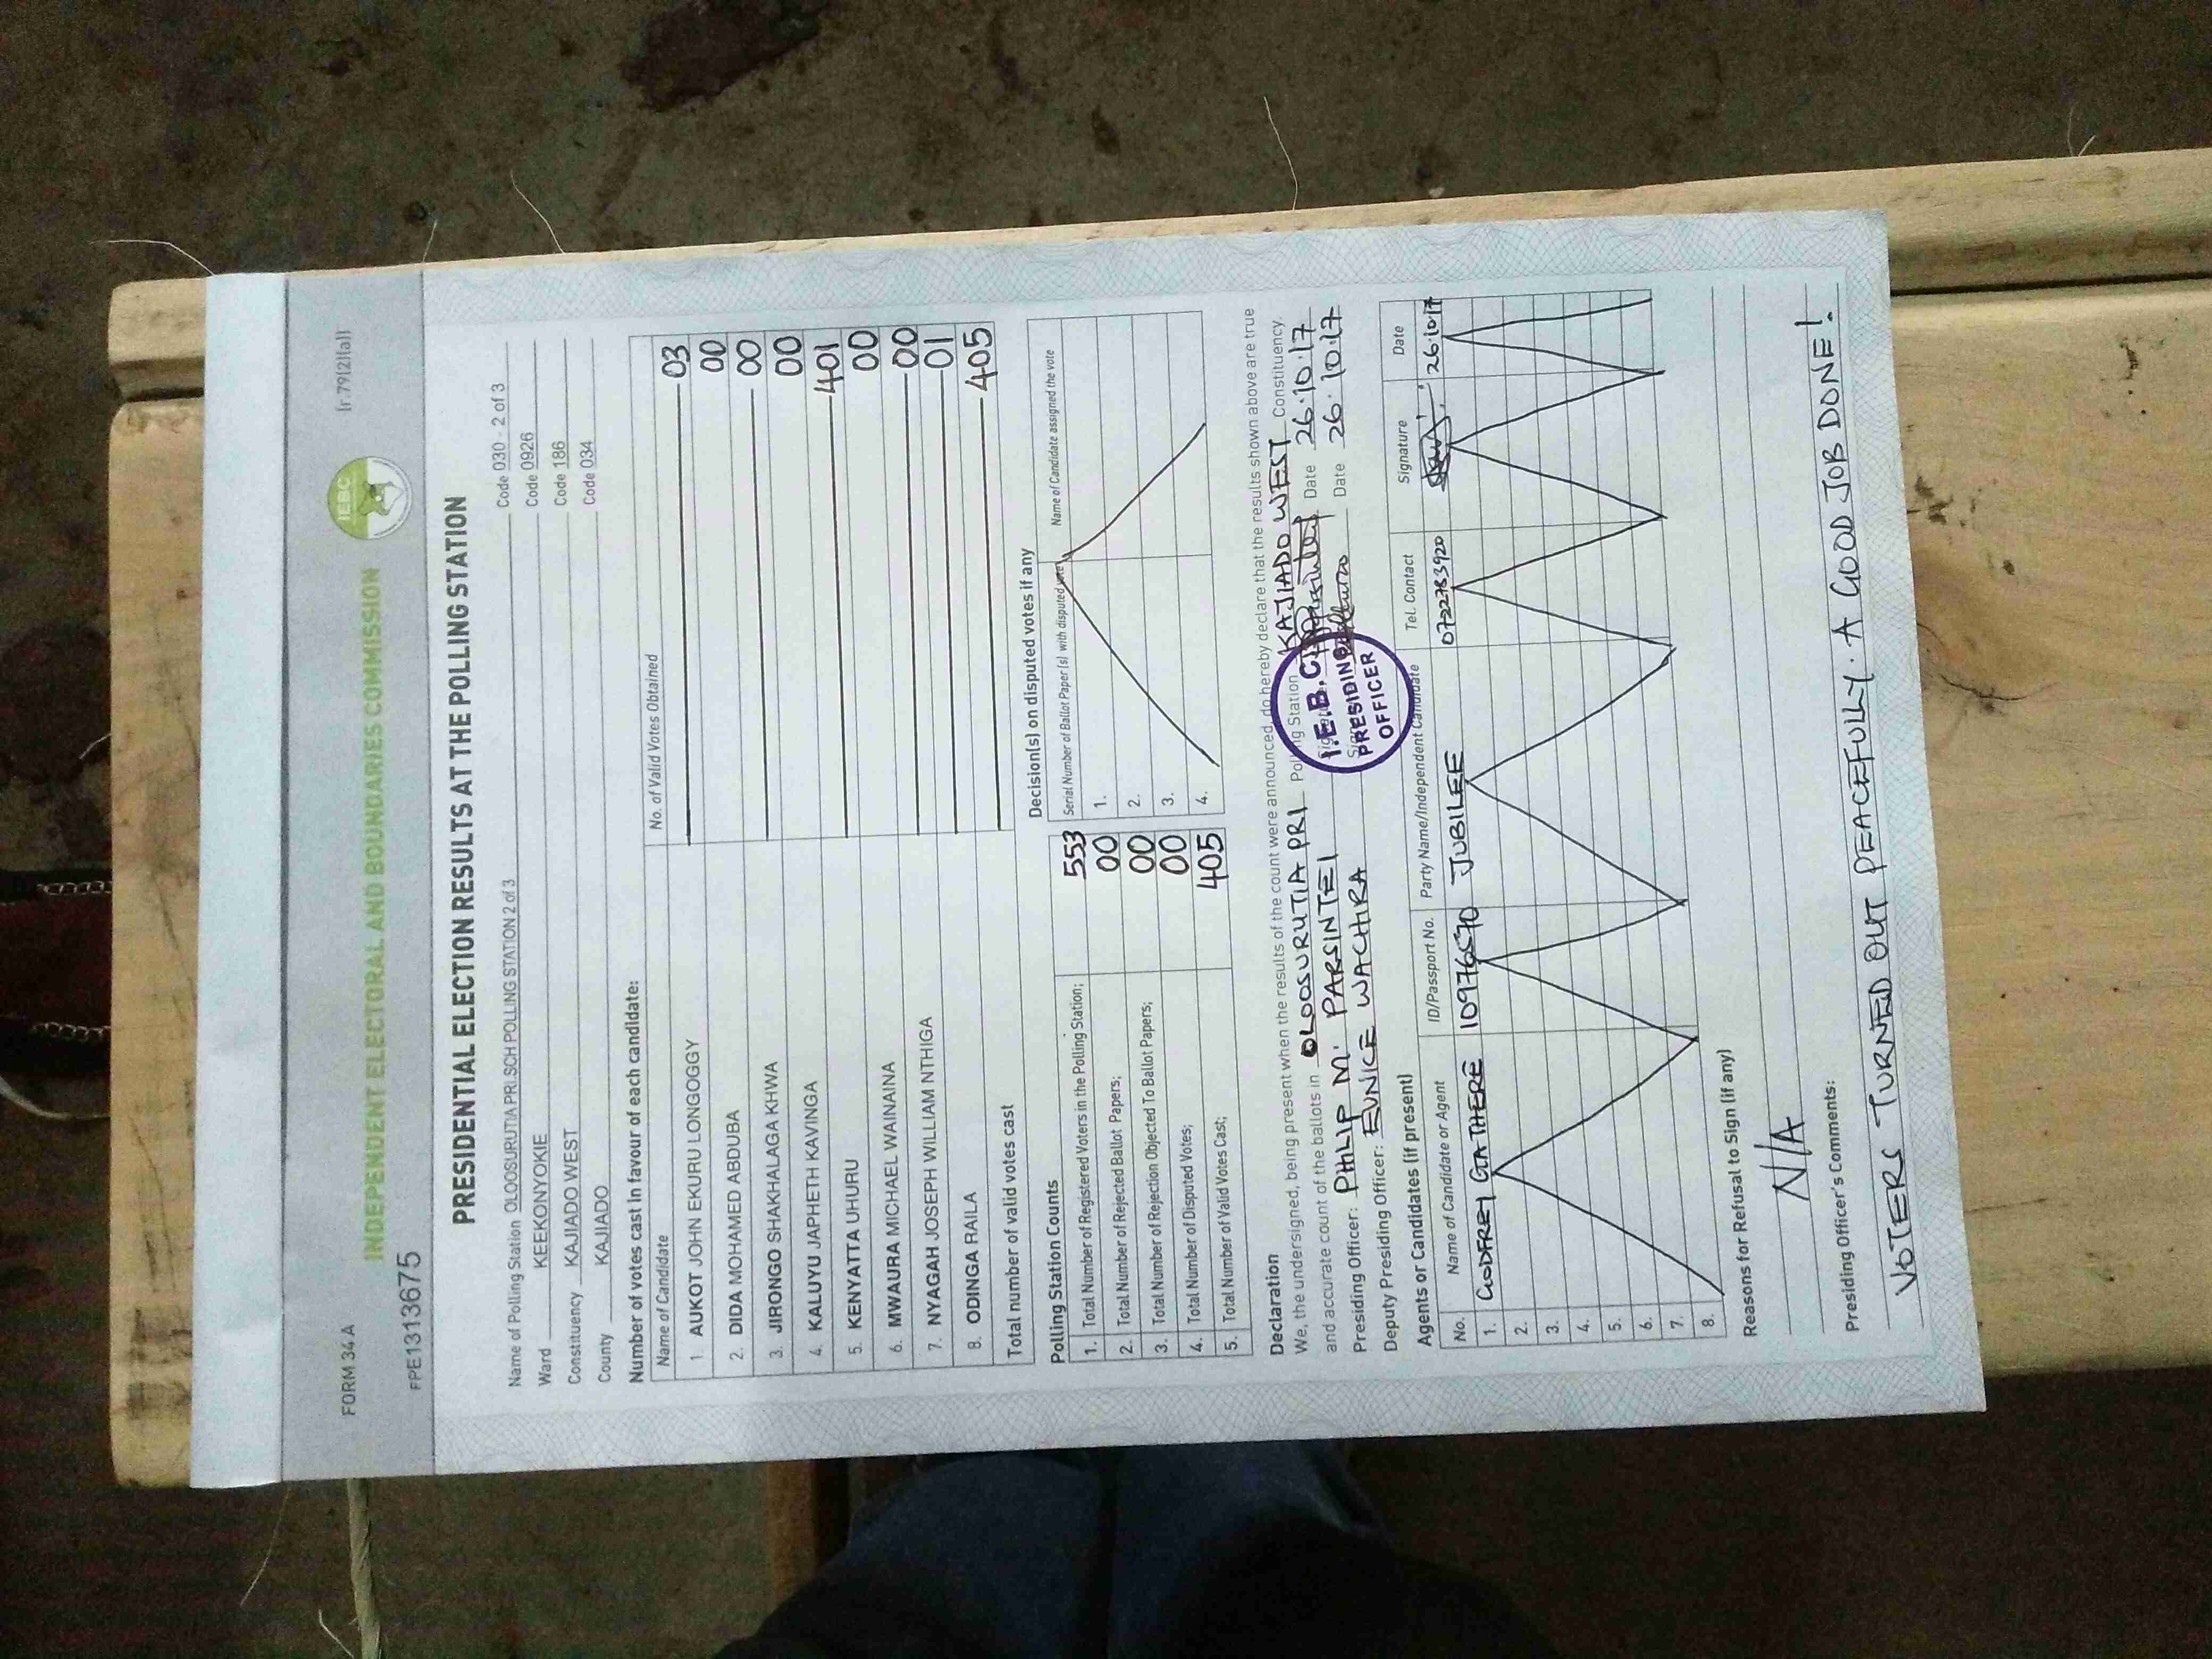 FORM 34 A [r.79(2)(a)]
INDEPENDENT ELECTORAL AND BOUNDARIES COMMISSION IEBC
PPE1313675
PRESIDENTIAL ELECTION RESULTS AT THE POLLING STATION
Name of Polling Station OLOOSURUTIA PRI.SCH POLLING STATION 2 of 3 Code 030 - 2 of 3
Ward KEEKONYOKIE Code 0926
Constituency KAJIADO WEST Code 186
County KAJIADO Code 034
Number of votes cast in favour of each candidate:
Name of Candidate No. of Valid Votes Obtained
1. AUKOT JOHN EKURU LONGOGGY 03
2. DIDA MOHAMED ABDUBA 00
3. JIRONGO SHAKHALAGA KHWA 00
4. KALUYU JAPHETH KAVINGA 00
5. KENYATTA UHURU 401
6. MWAURA MICHAEL WAINAINA 00
7. NYAGAH JOSEPH WILLIAM NTHIGA 00
8. ODINGA RAILA 01
Total number of valid votes cast 405
Polling Station Counts
1. Total Number of Registered Voters in the Polling Station; 553
2. Total Number of Rejected Ballot Papers; 00
3. Total Number of Rejection Objected To Ballot Papers; 00
4. Total Number of Disputed Votes; 00
5. Total Number of Valid Votes Cast; 405
Decision(s) on disputed votes if any
Serial Number of Ballot Paper(s) with disputed vote Name of Candidate assigned the vote
1.
2.
3.
4.
Declaration
We, the undersigned, being present when the results of the count were announced, do hereby declare that the results shown above are true
and accurate count of the ballots in OLOOSURUTIA PRI Polling Station KAJIADO WEST Constituency.
Presiding Officer: PHILIP M. PARSINTEI Date 26.10.17
Deputy Presiding Officer: EUNICE WACHIRA Date 26.10.17
I.E.B.C
PRESIDING
OFFICER
Agents or Candidates (if present)
No. Name of Candidate or Agent ID/Passport No. Party Name/Independent Candidate Tel. Contact Signature Date
1. GODFREY GATHERE 10976570 JUBILEE 0722783920 26.10.17
2.
3.
4.
5.
6.
7.
8.
Reasons for Refusal to Sign (if any)
N/A
Presiding Officer's Comments:
VOTERS TURNED OUT PEACEFULLY. A GOOD JOB DONE!